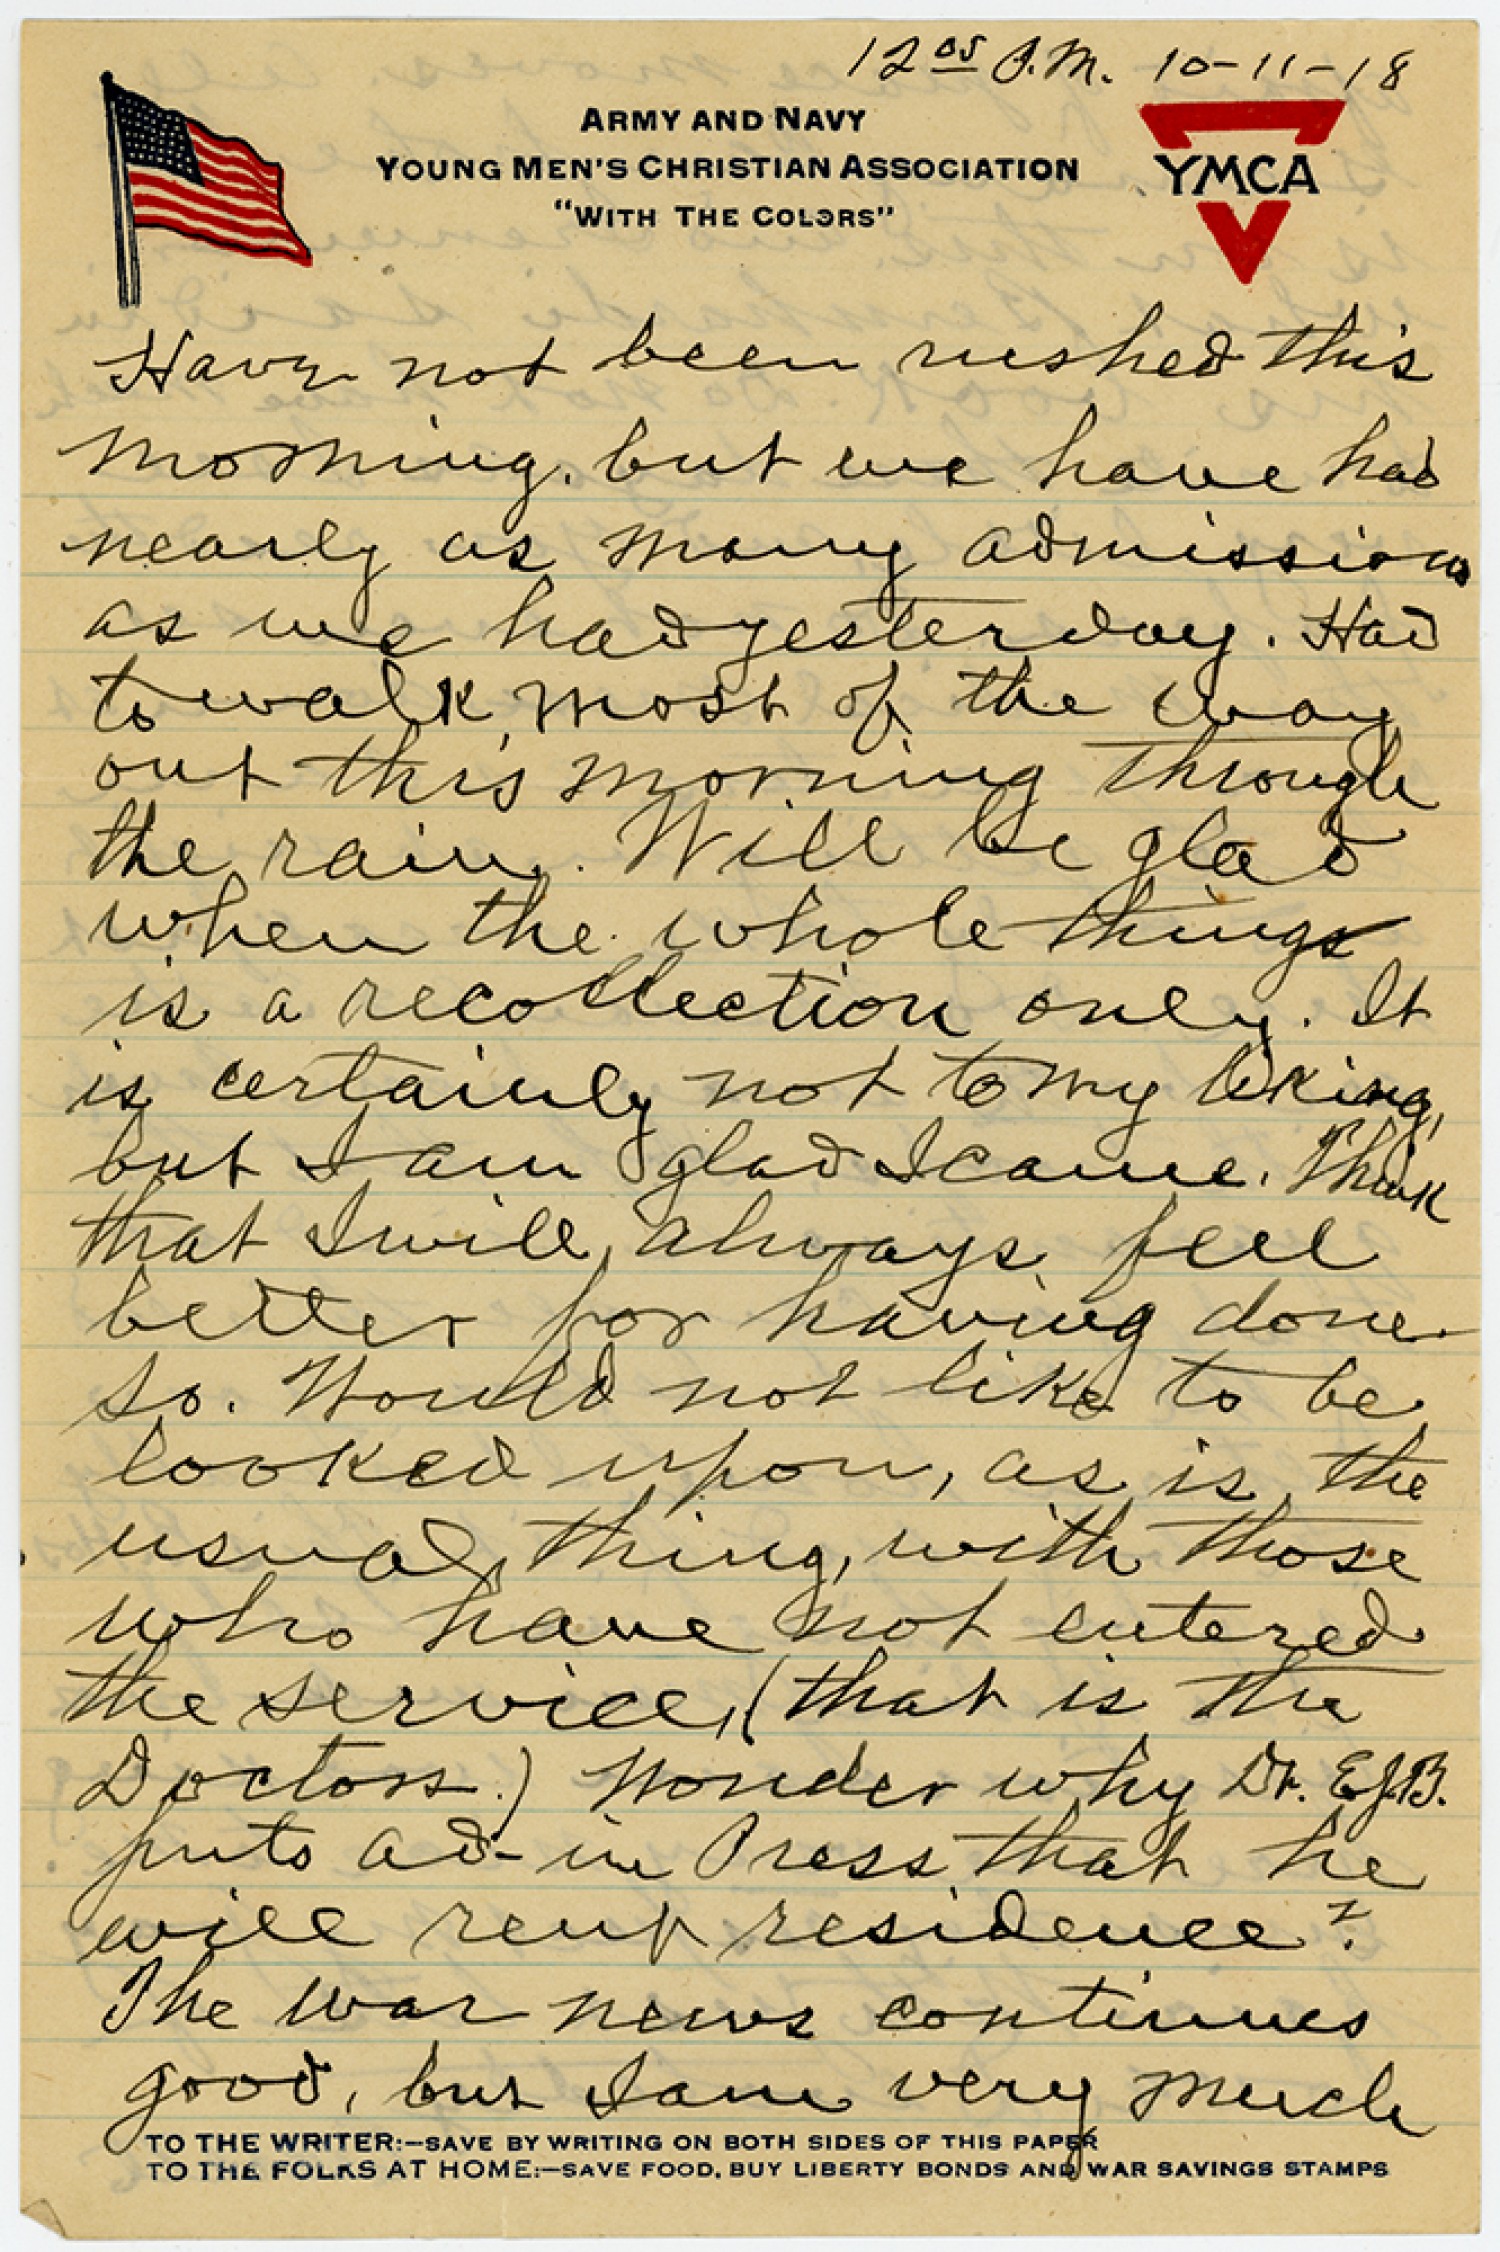 12 05 P.M. 10-11-18
ARMY AND NAVY
YOUNG MEN'S CHRISTIAN ASSOCIATION
"WITH THE COLORS"
YMCA
Have not been rushed this
morning, but we have had
nearly as many admissions
as we had yesterday. Had
to walk most of the way
out this morning through
the rain. Will be glad
when the whole things
is a recollection only. It
is certainly not to my liking,
but I am glad I came. Think
that I will always feel
better for having done
so. Would not like to be
looked upon, as is the
usual thing, with those
who have not entered
the service, (that is the
Doctors.) Wonder why Dr. E.J.B.
puts ad- in Press that he
will rent residence?
The war news continues
good, but I am very much
TO THE WRITER:—SAVE BY WRITING ON BOTH SIDES OF THIS PAPER
TO THE FOLKS AT HOME:—SAVE FOOD, BUY LIBERTY BONDS AND WAR SAVINGS STAMPS